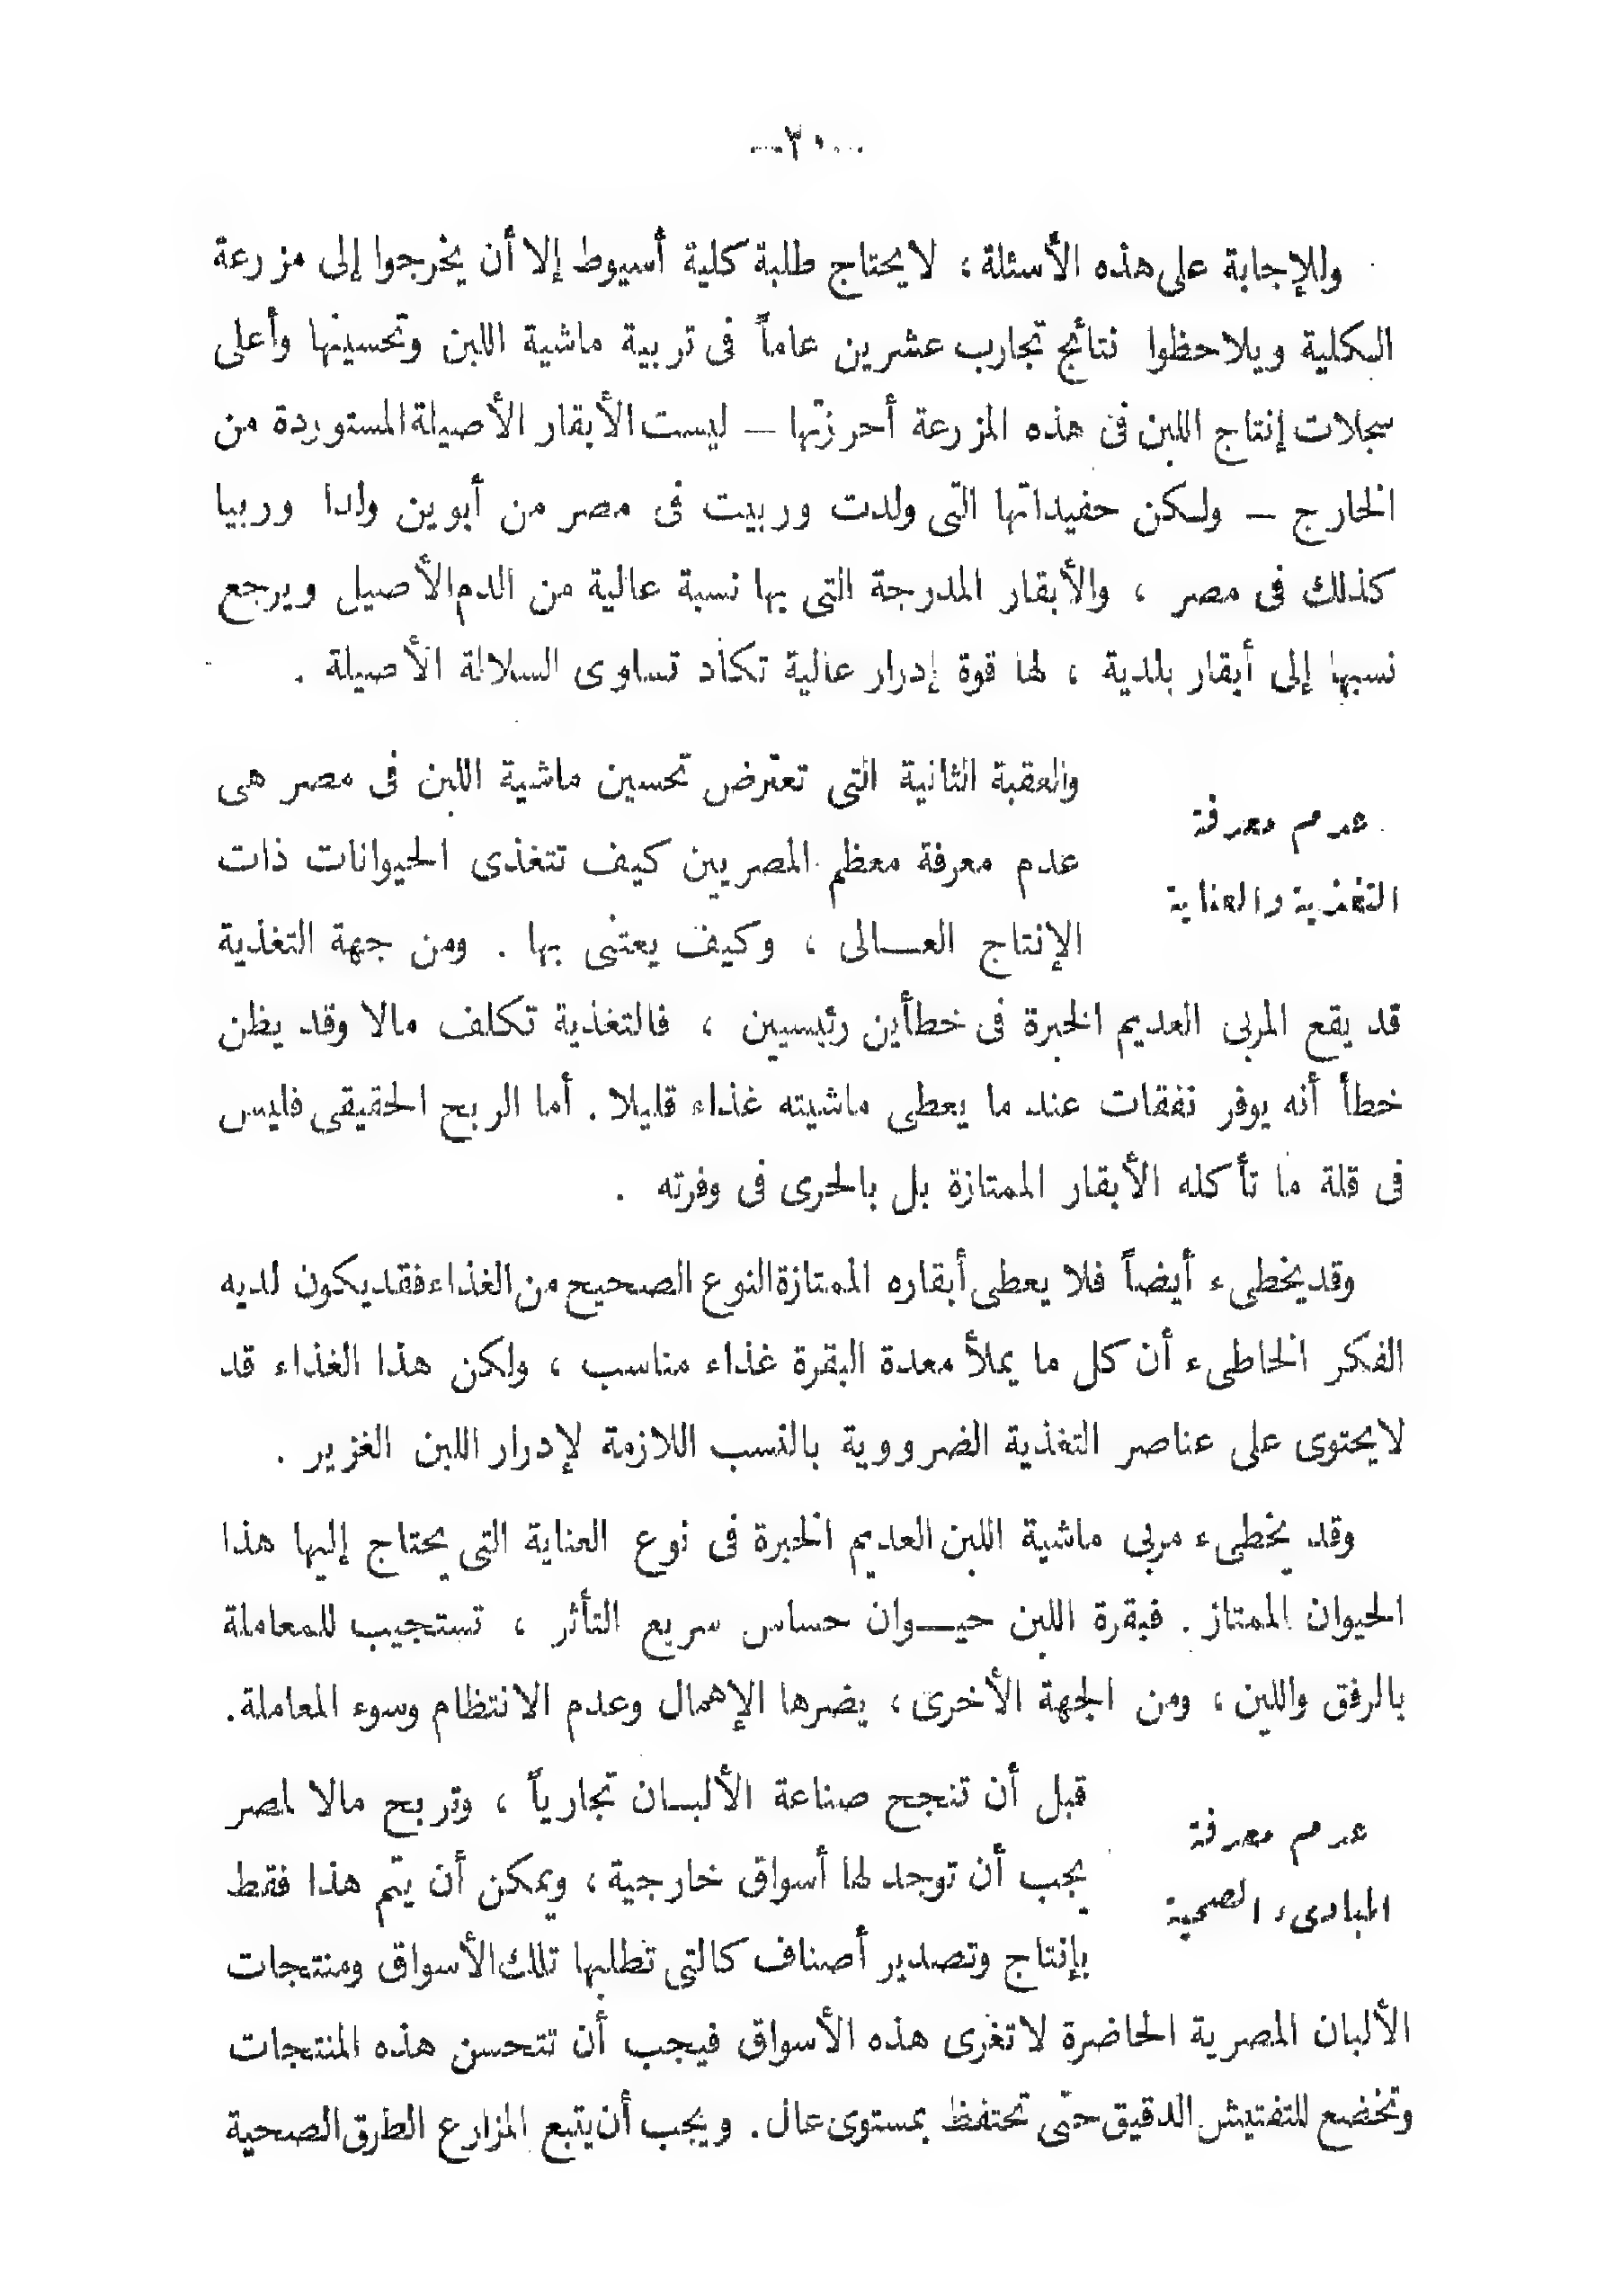 — ٣٠ —
وللإجابة على هذه الأسئلة ، لا يحتاج طلبة كلية أسيوط إلا أن يخرجوا إلى مزرعة
الكلية ويلاحظوا نتائج تجارب عشرين عاماً فى تربية ماشية اللبن وتحسينها وأعلى
سجلات إنتاج اللبن فى هذه المزرعة أحرزتها — ليست الأبقار الأصيلة المستوردة من
الخارج — ولكن حفيداتها التى ولدت وربيت فى مصر من أبوين ولدا وربيا
كذلك فى مصر ، والأبقار المدرجة التى بها نسبة عالية من الدم الأصيل ويرجع
نسبها إلى أبقار بلدية ، لها قوة إدرار عالية تكاد تساوى السلالة الأصيلة .
عدم معرفة
التغذية والعناية
والعقبة الثانية التى تعترض تحسين ماشية اللبن فى مصر هى
عدم معرفة معظم المصريين كيف تتغذى الحيوانات ذات
الإنتاج العـالى ، وكيف يعتنى بها . ومن جهة التغذية
قد يقع المربى العديم الخبرة فى خطأين رئيسيين ، فالتغذية تكلف مالا وقد يظن
خطأ أنه يوفر نفقات عند ما يعطى ماشيته غذاء قليلا . أما الربح الحقيقى فليس
فى قلة ما تأكله الأبقار الممتازة بل بالحرى فى وفرته .
وقد يخطىء أيضاً فلا يعطى أبقاره الممتازة النوع الصحيح من الغذاء فقد يكون لديه
الفكر الخاطىء أن كل ما يملأ معدة البقرة غذاء مناسب ، ولكن هذا الغذاء قد
لا يحتوى على عناصر التغذية الضرووية بالنسب اللازمة لإدرار اللبن الغزير .
وقد يخطىء مربى ماشية اللبن العديم الخبرة فى نوع العناية التى يحتاج إليها هذا
الحيوان الممتاز . فبقرة اللبن حيـوان حساس سريع التأثر ، تستجيب للمعاملة
بالرفق واللين ، ومن الجهة الأخرى ، يضرها الإهمال وعدم الانتظام وسوء المعاملة.
عدم معرفة
المبادىء الصحية
قبل أن تنجح صناعة الألبـان تجارياً ، وتربح مالا لمصر
يجب أن توجد لها أسواق خارجية ، ويمكن أن يتم هذا فقط
بإنتاج وتصدير أصناف كالتى تطلبها تلك الأسواق ومنتجات
الألبان المصرية الحاضرة لا تغرى هذه الأسواق فيجب أن تتحسن هذه المنتجات
وتخضع للتفتيش الدقيق حتى تحتفظ بمستوى عال . ويجب أن يتبع المزارع الطرق الصحية